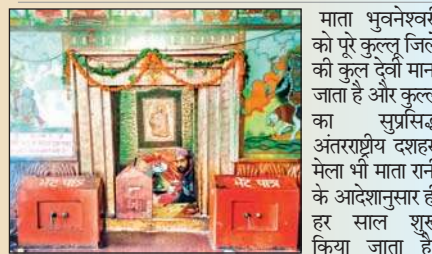 भेंट पात्र
भेंट पात्र
माता भुवनेश्वरी
को पूरे कुल्लू जिले
की कुल देवी मान
जाता है और कुल्ल
का सुप्रसिद्ध
अंतरराष्ट्रीय दशहर
मेला भी माता रानी
के आदेशानुसार ही
हर साल शुरू
किया जाता है